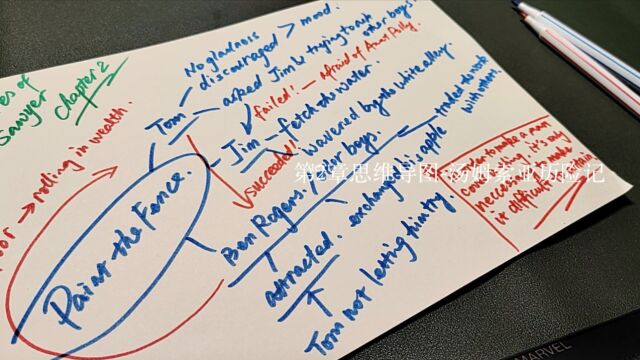 es of
Sawyer
Chapter 2
No gladness
discouraged > mood.
Tom — asked Jim & trying to
other boys.
failed! — afraid of Aunt Polly
Jim — fetch the water.
wavered by the white alley.
succeeded!
oor → rolling in wealth.
Paint the Fence.
Ben Rogers.
other boys.
traded the work
with others.
attracted.
exchange his apple
Tom not letting him try.
to make a man
covet a thing, it's only
neccessary to make
it difficult to attain
第2章思维导图-汤姆索亚历险记
MARVEL